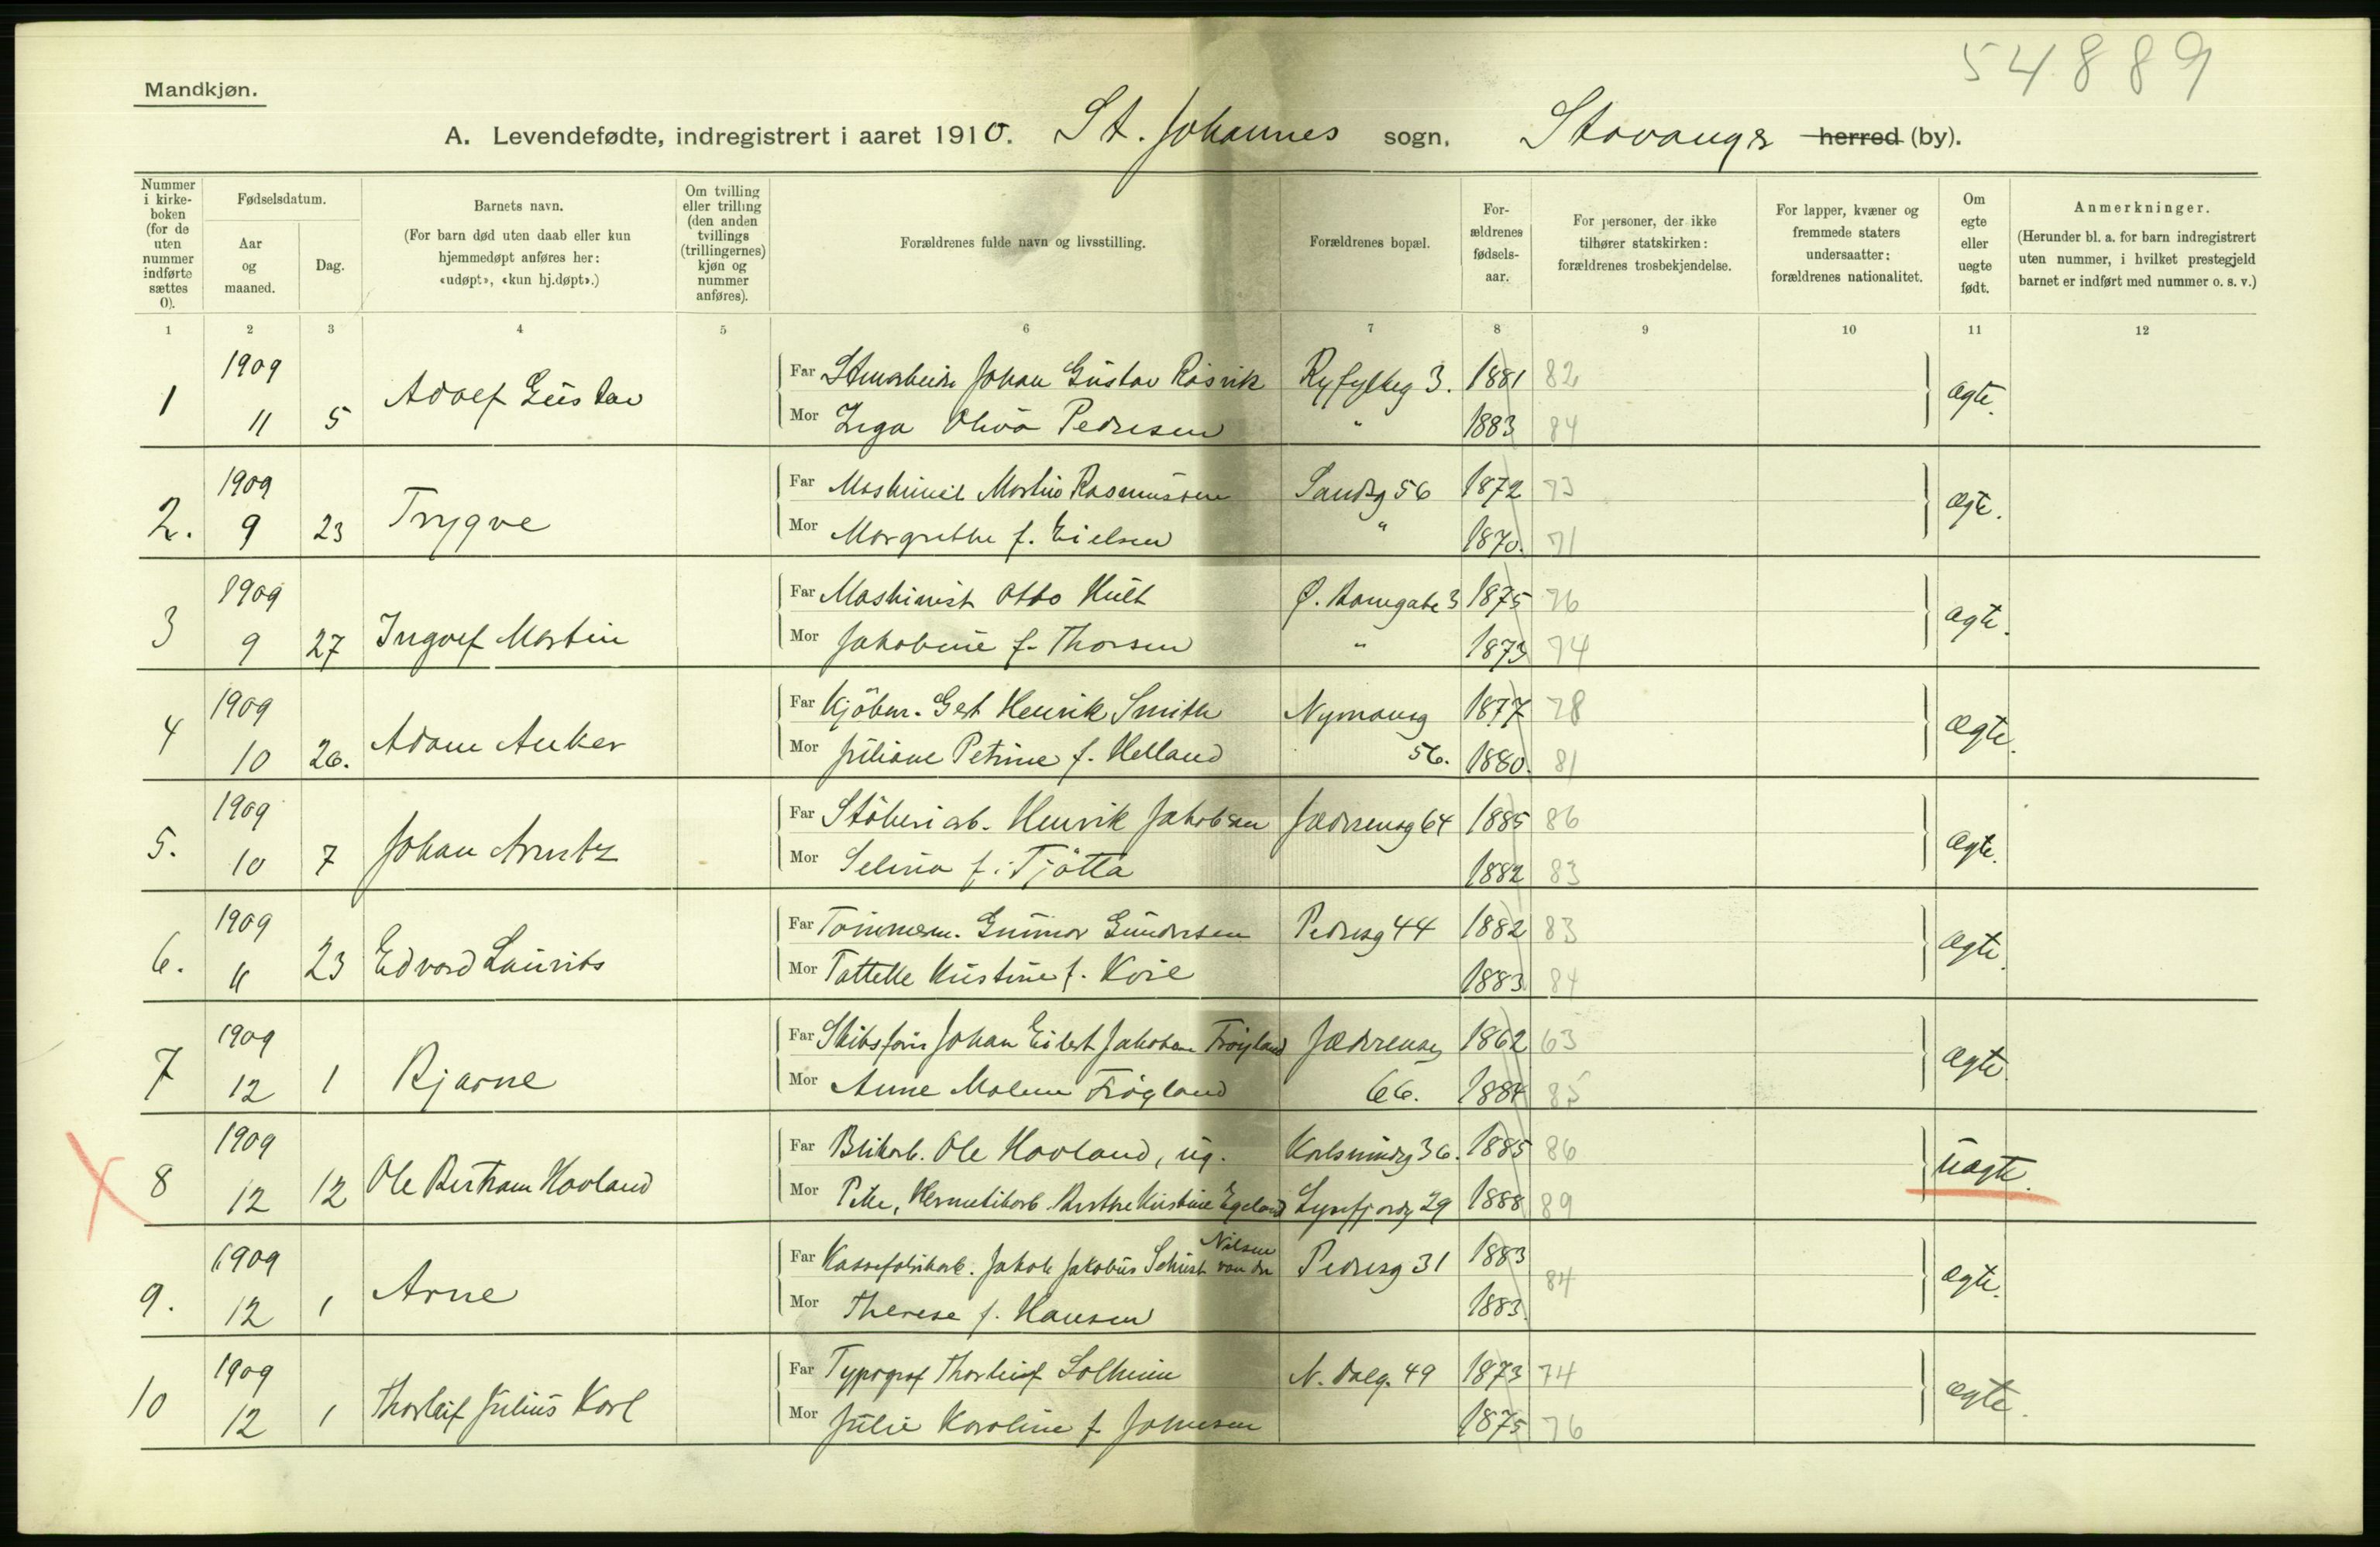 54889
Mandkjøn.
A. Levendefødte, indregistrert i aaret 1910. St. Johannes sogn. Stavanger herred (by).
Nummer i kirkeboken (for de uten nummer indførte sættes 0).
Fødselsdatum.
Aar og maaned.
Dag.
Barnets navn.
(For barn død uten daab eller kun hjemmedøpt anføres her: «udøpt», «kun hj.døpt».)
Om tvilling eller trilling (den anden tvillings (trillingernes) kjøn og nummer anføres).
Forældrenes fulde navn og livsstilling.
Forældrenes bopæl.
Forældrenes fødselsaar.
For personer, der ikke tilhører statskirken: forældrenes trosbekjendelse.
For lapper, kvæner og fremmede staters undersaatter: forældrenes nationalitet.
Om egte eller uegte født.
Anmerkninger.
(Herunder bl. a. for barn indregistrert uten nummer, i hvilket prestegjeld barnet er indført med nummer o. s. v.)
1 2 3 4 5 6 7 8 9 10 11 12
1909 Far Johan Gustav Rosvik Ryfylkeg 3. 1881 82
1 11 5 Adolf Gustav ægte.
Mor Inga Oliva Pedersen " 1883 84
1909 Far Maskinist Martin Rasmussen Sandsg 56 1872 73
2. 9 23 Trygve ægte.
Mor Margrethe f. Eielsen " 1870. 71
1909 Far Maskinist Otto Hult Ø. 3 1875 76
3 9 27 Ingolf Martin ægte.
Mor Jakobine f. Thorsen " 1873 74
1909 Far Kjøbm. Gert Henrik Smith Nymansg 1877 78
4 10 26. Adam Anker ægte.
Mor Juliane Petrine f. Helland 56. 1880. 81
1909 Far Støberiarb. Henrik Jakobsen Jædrensg 64 1885 86
5. 10 7 Johan Arntz ægte.
Mor Selina f. Tjøtta 1882 83
1909 Far Tømmerm. Gunnar Gundersen Pedersg 44 1882 83
6. 11 23 Edvard Laurits ægte.
Mor Kristine f. 1883 84
1909 Far Skibsfører Johan Eilert Jakobsen Frøyland Jædrensg 1862 63
7 12 1 Bjarne ægte.
Mor Anne Malene Frøyland 66. 1884 85
1909 Far Blikarb. Ole Hovland, ug. Karlsmindeg 36. 1885 86
8 12 12 Ole Bertram Hovland uægte.
Mor Pike, Hermetikarb. Berthe Kristine Egeland Lysefjordg 29 1888 89
Nilsen
1909 Far Kassefabrikarb. Jakob Jakobus van der Pedersg 31 1883
9. 12 1 Arne 84 ægte.
Mor Therese f. Hansen 1883.
1909 Far Typograf Thorleif Solheim N. Dalg. 49 1873 74
10 12 1 Thorleif Julius Karl ægte.
Mor Julie Karoline f. Johnsen 1875 76